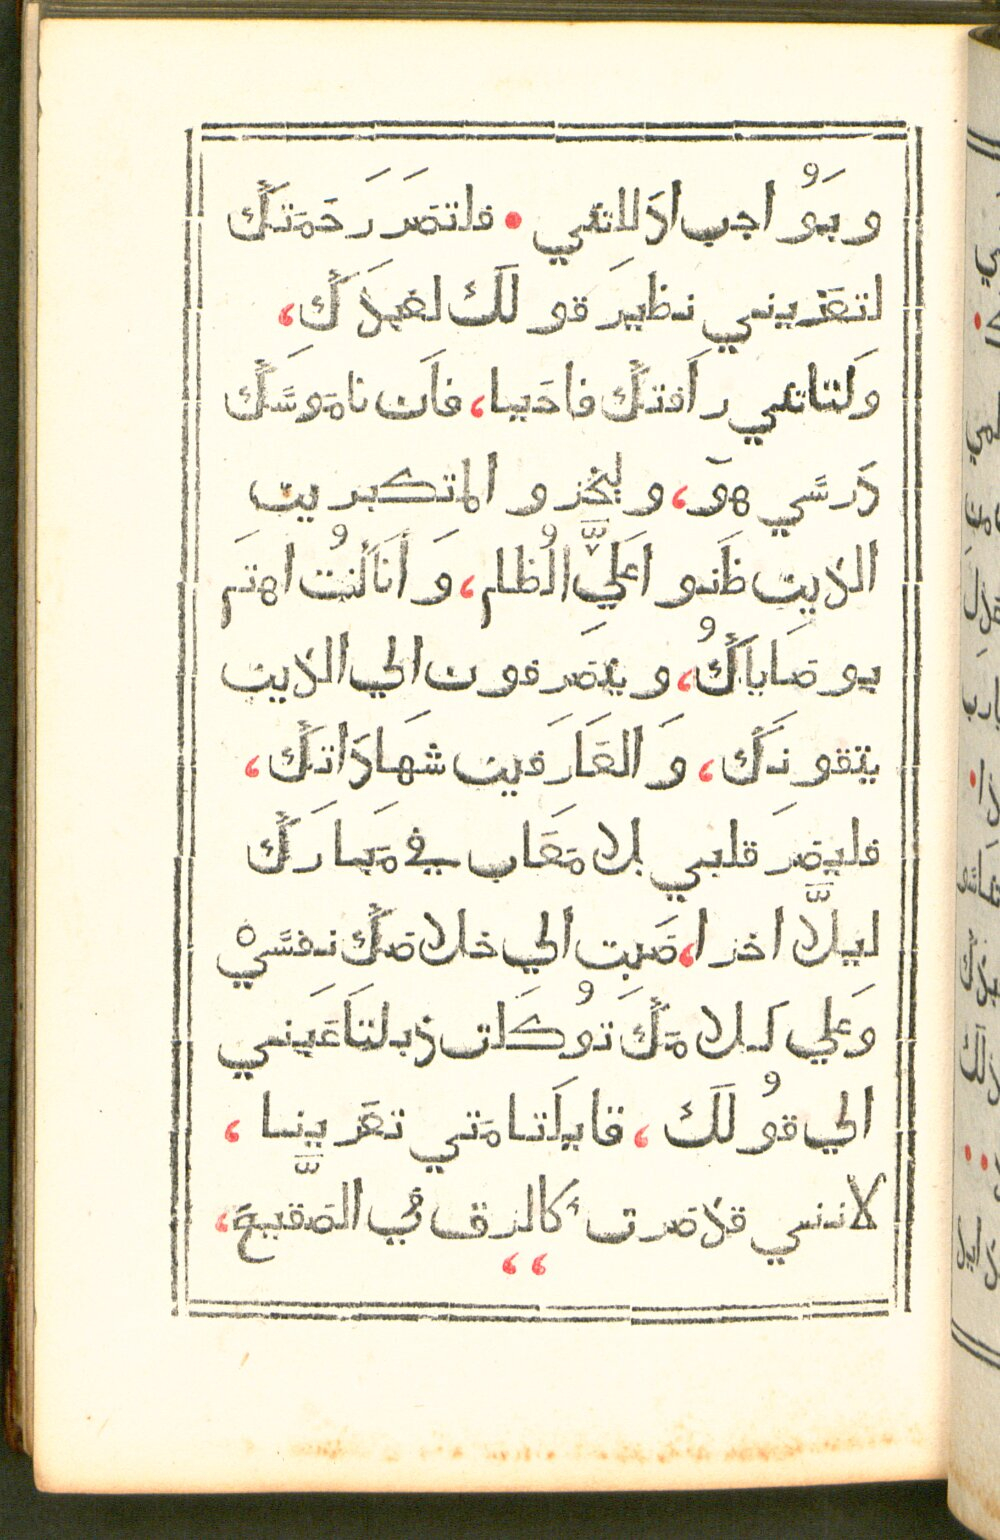 وبَوُ اجب اذَللاتني • فلتصَر رَحمَتكَ
لتعَزيني نظيرَ قولَك لعَبدَكَ،
وَلتاتني رَافتكَ فاحَيا، فاَن نامَوسَكَ
دَرسَي هوَ، وليخز والمتكبرين
الذين ظَنوا عَليَّ الُظلم، وَأنَا كنُت اهتَم
بوصَاياكَُ، ويتصَرفون الي الذين
يتقونَكَ، وَالعَارَفين شهَادَاتكَ،
فليصَر قلبي بلا مَعَاب في مَبارَكَ
ليلَّا اخزا، صَبِت الي خلاصَكَ نفسَي ه
وَعلي كَلامَكَ توُكَلت ذبلتاَعَيني
الي قوُلَك، قايلَتا مَتي تعَزيّنا،
لانني قدصَرت كالزق في الصَقيعَ،
،،